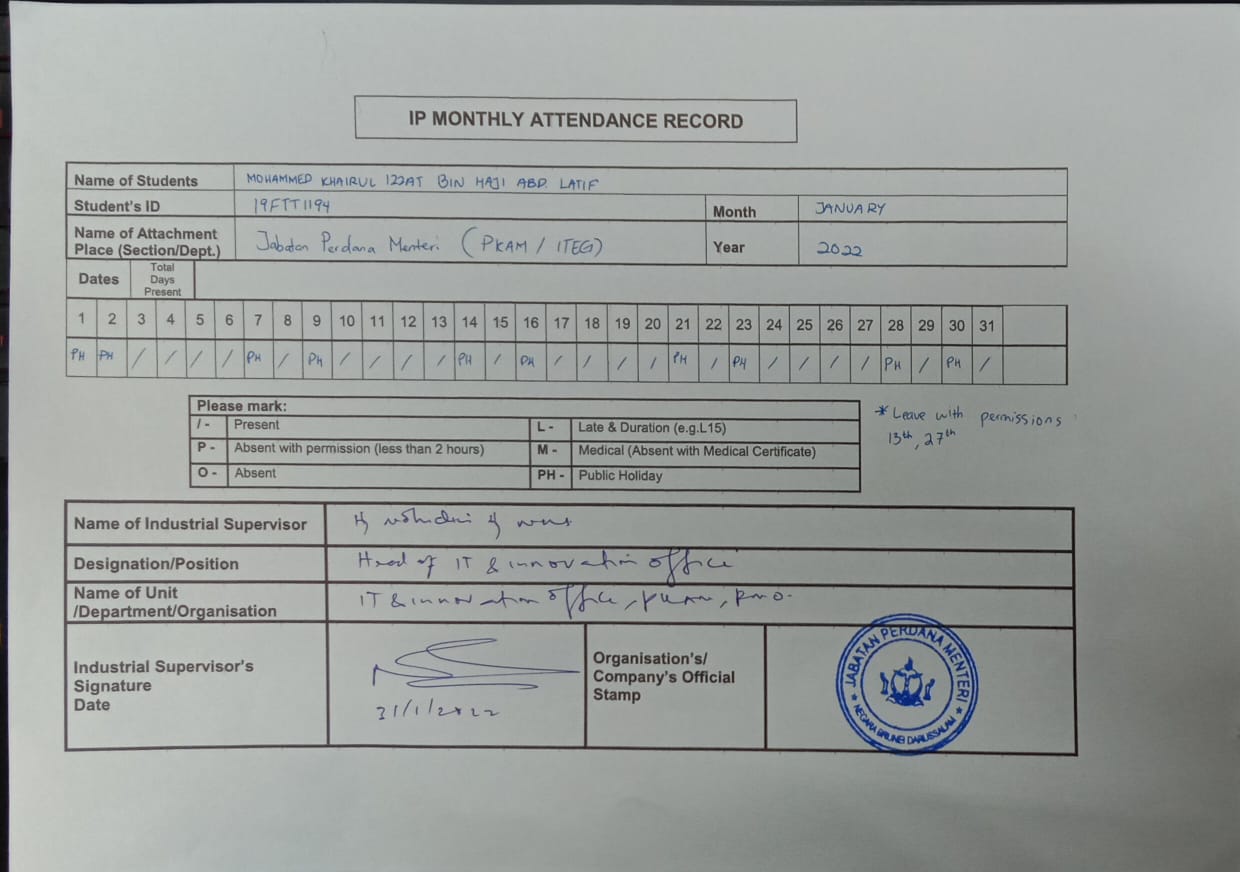 IP MONTHLY ATTENDANCE RECORD
Name of Students MOHAMMED KHAIRUL IZZAT BIN HAJI ABD. LATIF
Student's ID 19FTT1194 Month JANUARY
Name of Attachment
Place (Section/Dept.) Jabatan Perdana Menteri (PKAM / ITEG) Year 2022
Dates Total
Days
Present
1 2 3 4 5 6 7 8 9 10 11 12 13 14 15 16 17 18 19 20 21 22 23 24 25 26 27 28 29 30 31
PH PH / / / / PH / PH / / / / PH / PH / / / / PH / PH / / / / PH / PH /
Please mark:
/ - Present L - Late & Duration (e.g.L15)
P - Absent with permission (less than 2 hours) M - Medical (Absent with Medical Certificate)
O - Absent PH - Public Holiday
* Leave with permissions
13th, 27th
Name of Industrial Supervisor
Designation/Position Head of IT & innovation office
Name of Unit
/Department/Organisation IT & innovation office, PKAM, PMO.
Industrial Supervisor's
Signature
Date 31/1/2022
Organisation's/
Company's Official
Stamp
JABATAN PERDANA MENTERI
NEGARA BRUNEI DARUSSALAM